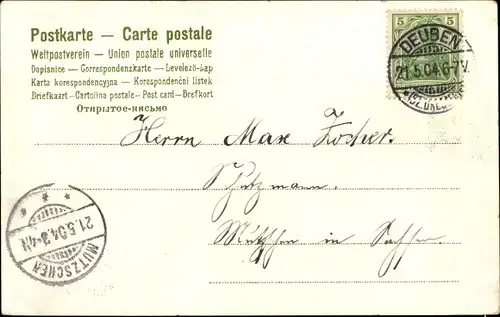 Postkarte — Carte postale
Weltpostverein — Union postale universelle
Dopisnice — Correspondenzkarte — Levelező-Lap
Karta korespondencyjna — Korespondenční listek
Briefkaart — Cartolina postale — Post card — Brefkort
Открытое-письмо
5 5
DEUBEN
21.5.04.6-7V.
Herrn Max Zocher.
Schutzmann.
Mutzschen in Sachsen.
21.5.04.3-4N
MUTZSCHEN